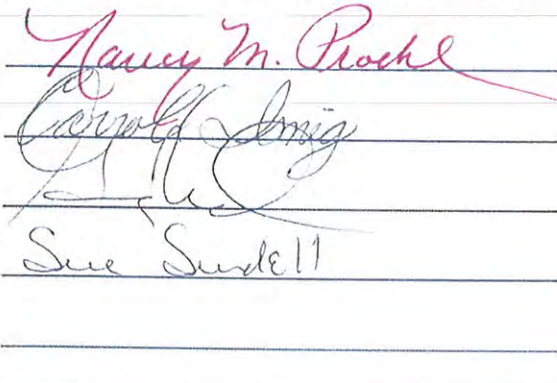 Nancy M. Prochl
Carroll Imig
Sue Sundell